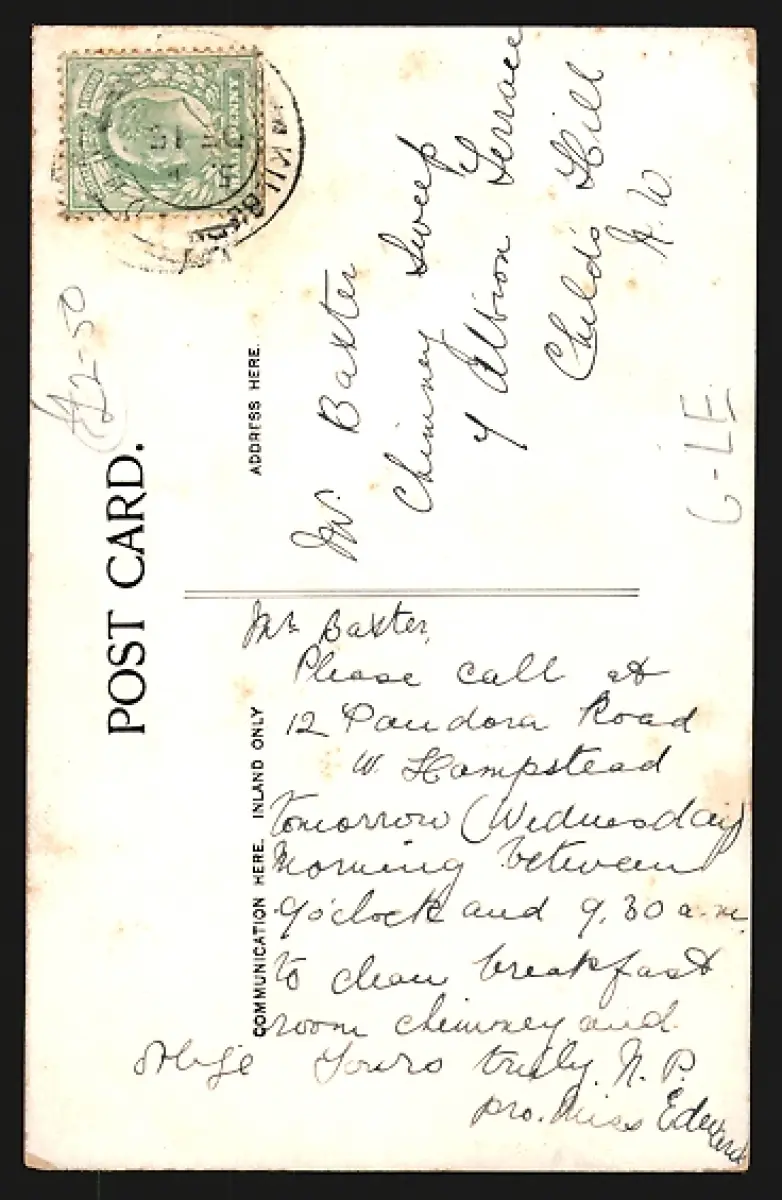 POST CARD.
ADDRESS HERE.
Mr. Baxter
Chimney Sweep
7 Albion Terrace
Child's Hill
N.W.
£2-50
6-LE
COMMUNICATION HERE. INLAND ONLY
Mr Baxter,
Please call at
12 Pandora Road
W. Hampstead
tomorrow (Wednesday)
Morning between
9 o'clock and 9.30 a.m.
to clean breakfast
room chimney and
oblige Yours truly N. P.
pro. Miss Edward